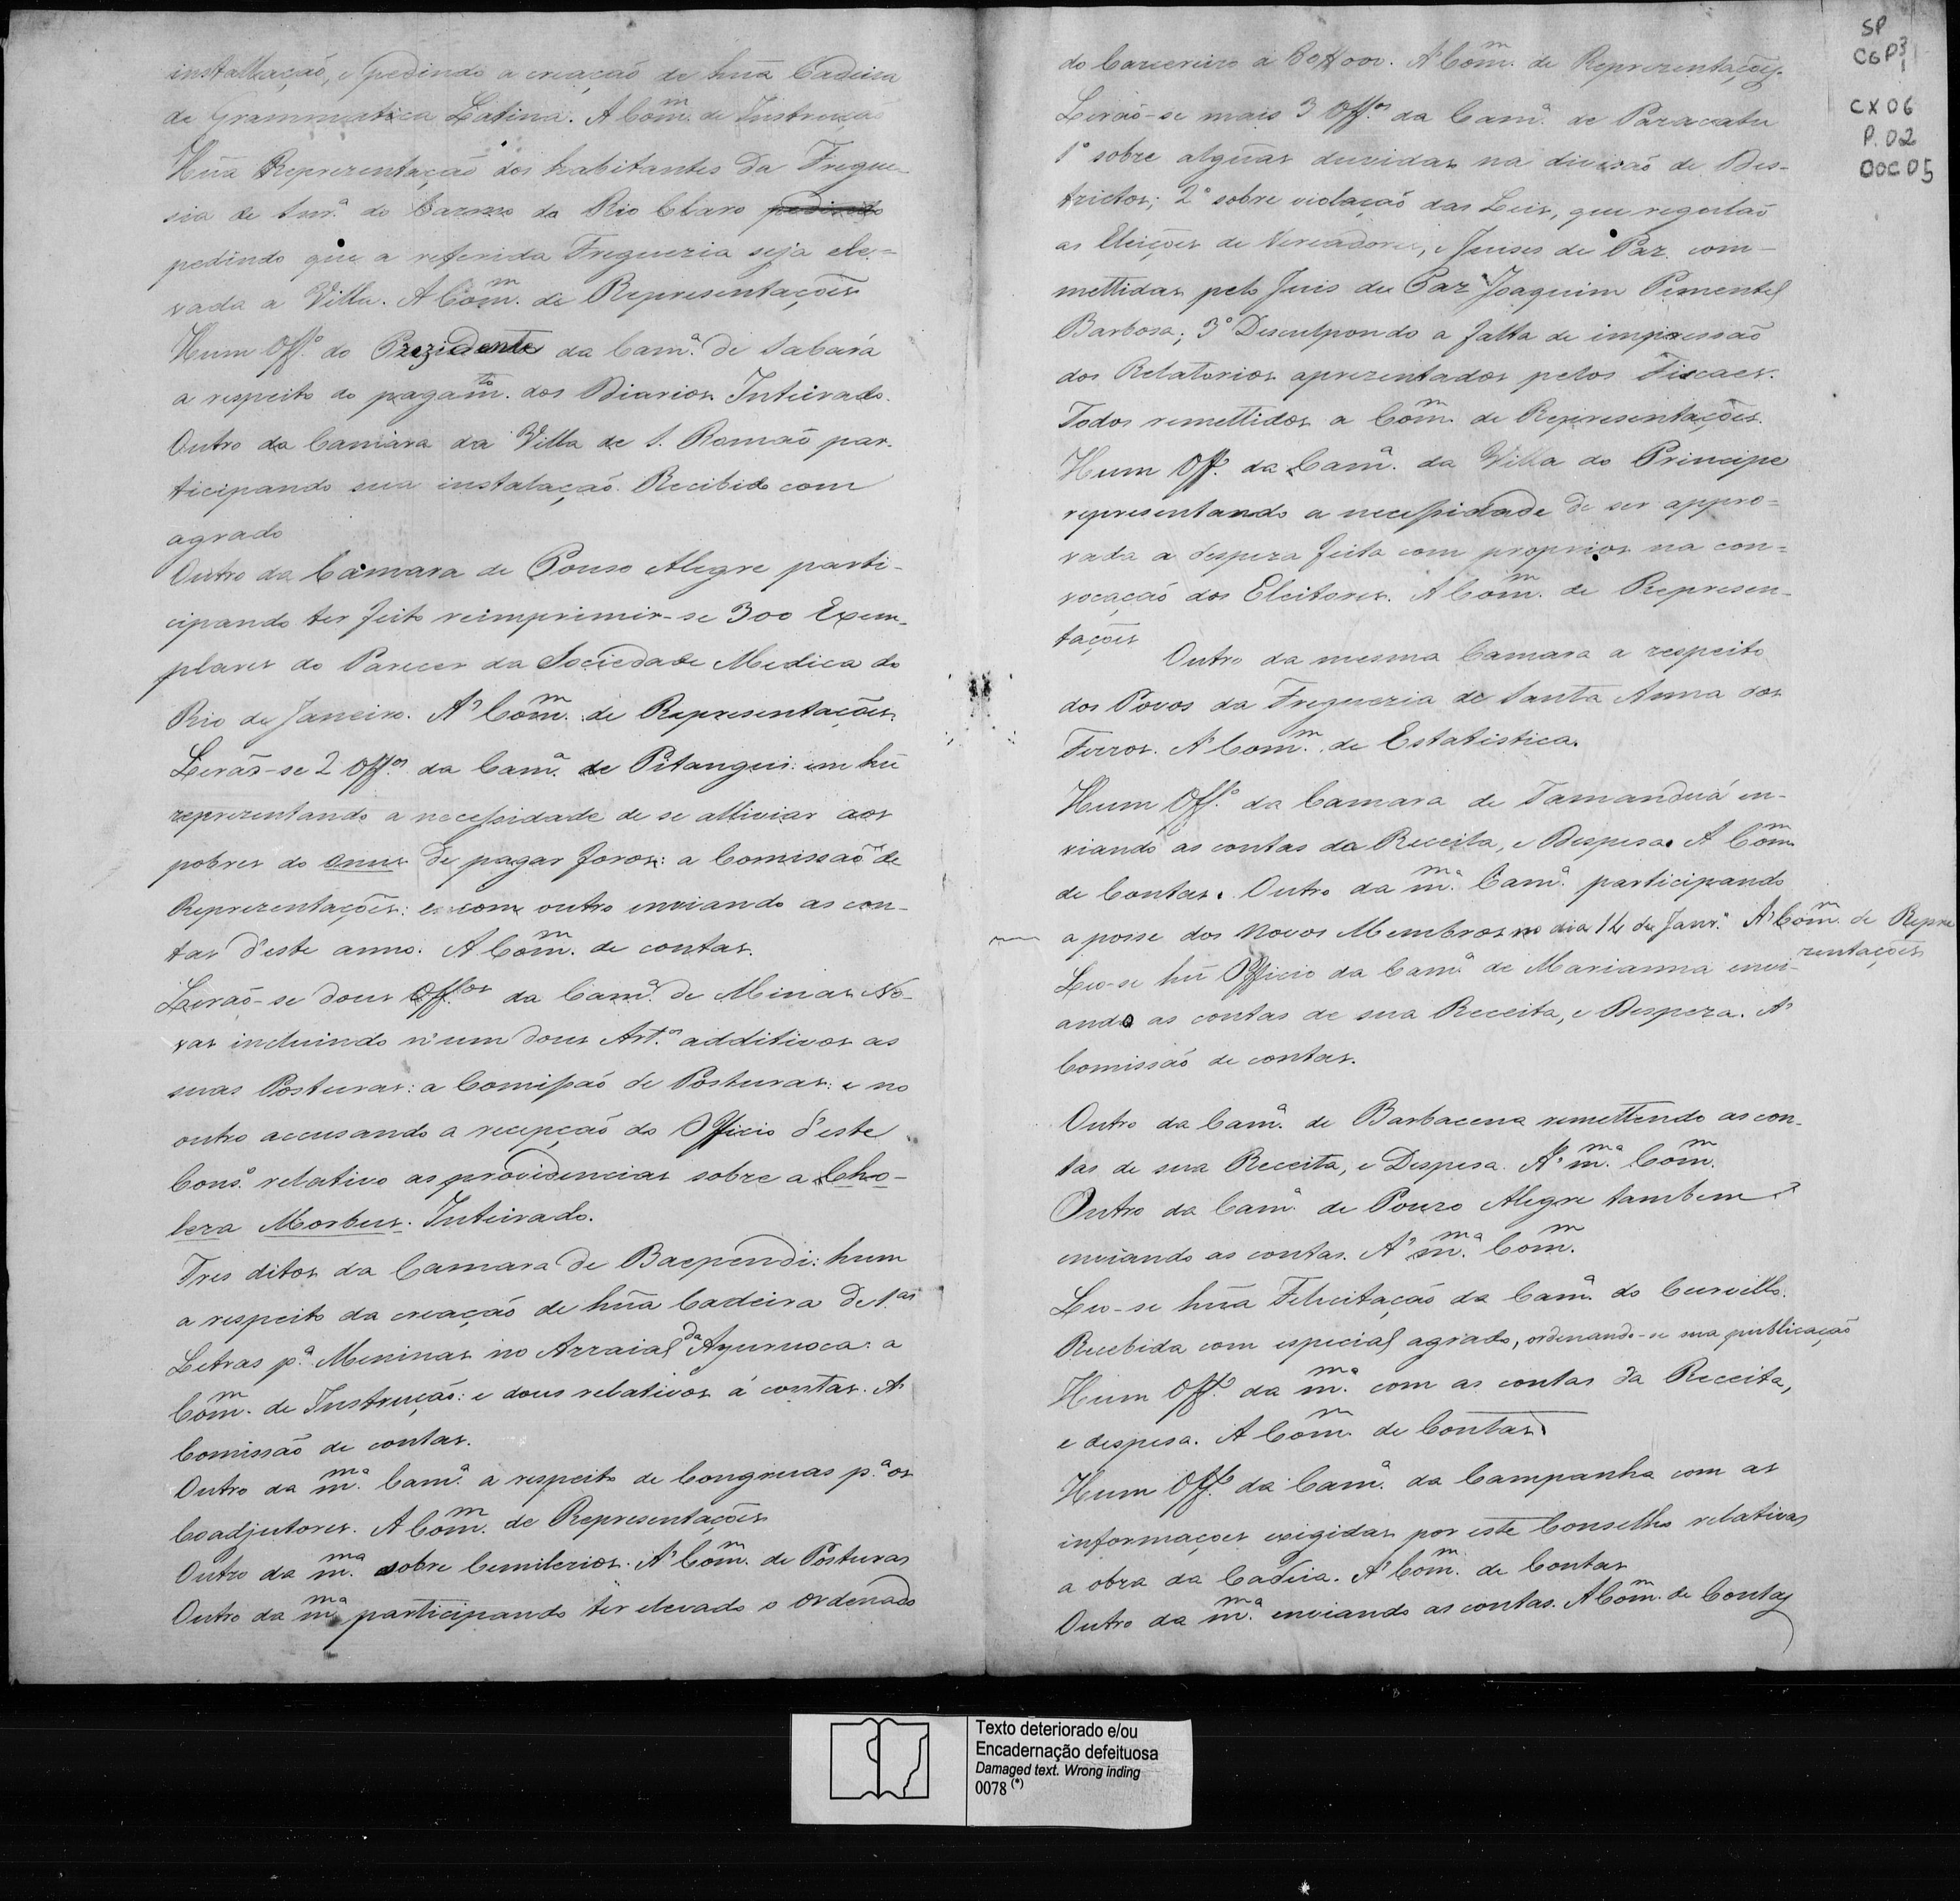 installação, e pedindo a creação de hũa Cadeira
de Grammatica Latina. A Com.m de Instrucção
Hũa Reprezentação dos habitantes da Fregue-
sia de Snr.a do Carmo do Rio Claro pedindo
pedindo que a referida Freguezia seja ele-
vada a Villa. A Com.m de Representações
Hum Off.o do Prezidente da Cam.a de Sabará
a respeito do pagam.to dos Diarios. Inteirado.
Outro da Camara da Villa de S. Romaõ par-
ticipando sua instalaçaõ. Recibido com
agrado
Outro da Camara de Pouso Alegre parti-
cipando ter feito reimprimir-se 300 Exem-
plares do Parecer da Sociedade Medica do
Rio de Janeiro. A' Com.m de Representações
Leraõ-se 2 Off.os da Cam.a de Pitangui: em hũ
reprezentando a necessidade de se alliviar aos
pobres do onus de pagar foros: a Comissaõ de
Reprezentações: e com outro enviando as con-
tas d'este anno. A Com.m de contas.
Leraõ-se dous Off.os da Cam.a de Minas No-
vas incluindo n'um dous Art.os additivos as
suas Posturas: a Comissaõ de Posturas: e no
outro accusando a recepçaõ do Officio d'este
Cons.o relativo as providencias sobre a Cho-
lera Morbus. Inteirado.
Tres ditos da Camara de Baependi: hum
a respeito da creaçaõ de hũa Cadeira de 1.as
Letras p.a Meninas no Arraial da Ayuruoca: a
Com.m de Instruçaõ: e dous relativos á contas. A'
Comissaõ de contas.
Outro da m.ma Cam.a a respeito de Congruas p.a os
Coadjutores. A Com.m de Representações
Outro da m.ma sobre Cemiterios. A' Com.m de Posturas
Outro da m.ma participando ter elevado o ordenado
do Carcereiro a 80$000. A' Com.m de Reprezentações.
Leraõ-se mais 3 Off.os da Cam.a de Paracatu
1º sobre algũas duvidas na divisaõ de Des-
trictos; 2º sobre violaçaõ das Leis, que regulaõ
as Eleições de Vereadores, e Juises de Paz, com-
mettidas pelo Juis de Paz Joaquim Pimentel
Barbosa; 3º Desculpando a falta de impressaõ
dos Relatorios aprezentados pelos Fiscaes.
Todos remettidos a Com.m de Representações.
Hum Off.o da Cam.a da Villa do Principe
representando a necessidade de ser appro-
vada a despeza feita com proprios na con-
vocaçaõ dos Eleitores. A Com.m de Represen-
tações
Outro da mesma Camara a respeito
dos Povos da Freguezia de Santa Anna dos
Ferros. A' Com.m de Estatistica.
Hum Off.o da Camara de Tamanduá en-
viando as contas da Receita, e Despesa. A Com.m
de Contas. Outro da m.ma Cam.a participando
a posse dos novos Membros no dia 14 de Janr.o A' Com.m de Repre
zentações
Leo-se hũ Officio da Cam.a de Marianna envi-
ando as contas de sua Receita, e Despeza. A'
Comissaõ de contas.
Outro da Cam.a de Barbacena remettendo as con-
tas de sua Receita, e Despesa. A' m.ma Com.m
Outro da Cam.a de Pouzo Alegre tambem
enviando as contas. A' m.ma Com.m
Leo-se hũa Felicitaçaõ da Cam.a do Curvello.
Recebida com especial agrado, ordenando-se sua publicaçaõ
Hum Off.o da m.ma com as contas da Receita,
e despesa. A Com.m de Contas
Hum Off.o da Cam.a da Campanha com as
informações exigidas por este Conselho relativas
a obra da Cadeia. A' Com.m de Contas
Outro da m.ma enviando as contas. A Com.m de Contas
SP
CGP3
1
CX 06
P. 02
DOC 05
Texto deteriorado e/ou
Encadernação defeituosa
Damaged text. Wrong inding
0078 (*)